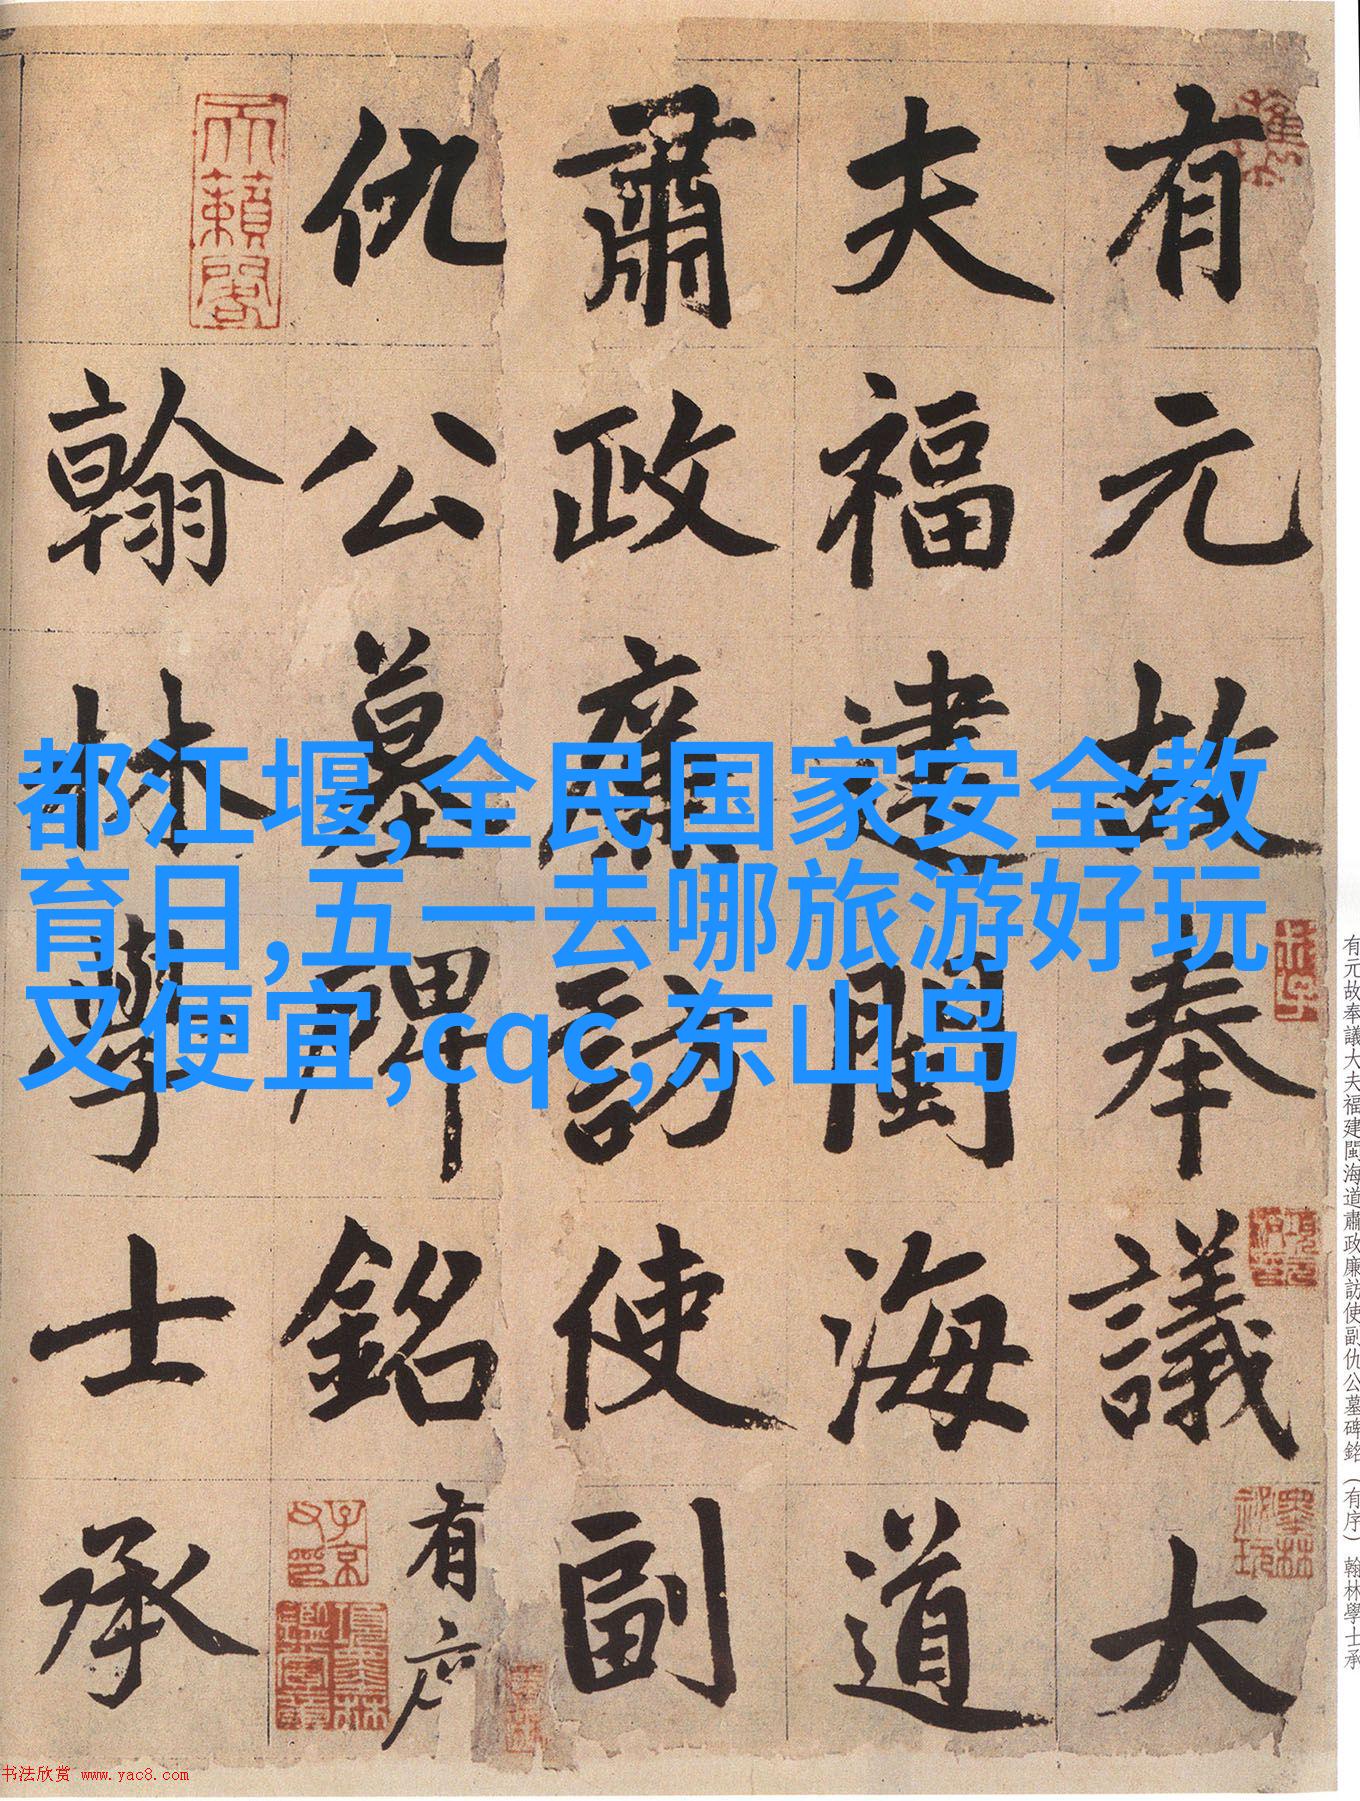 有元故奉議大
夫福建閩海道
肅政廉訪使副
仇公墓碑銘有序
翰林學士承
都江堰,全民国家安全教
育日,五一去哪旅游好玩
又便宜,cqc,东山岛
有元故奉議大夫福建閩海道肅政廉訪使副仇公墓碑銘（有序）翰林學士承
天籟閣
子京父印
墨林祕玩
书法欣赏 www.yac8.com